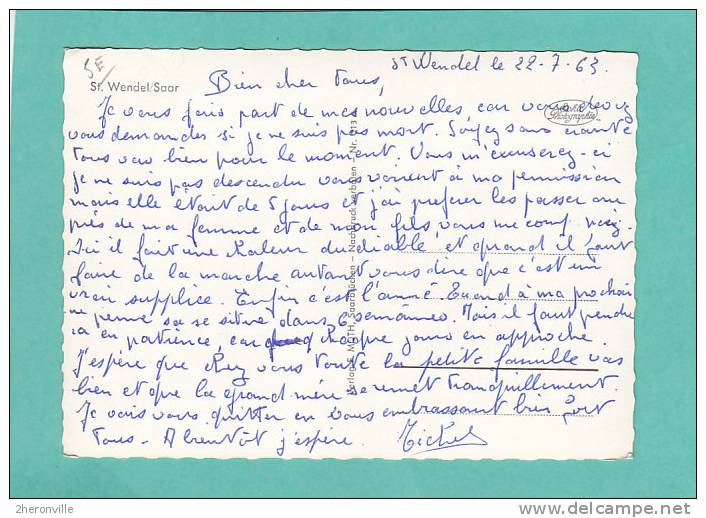 5E
St. Wendel/Saar
St Wendel le 22-7-63.
Bien cher tous,
Je vous fais part de mes nouvelles, car vous devez
vous demandes si je ne suis pas mort. Soyez sans crainte
tous vas bien pour le moment. Vous m'excuserez si
je ne suis pas descendu vous voir à ma permission
mais elle était de 5 jours et j'ai préférer les passer au
près de ma femme et de mon fils vous me comprenez.
Ici il fait une chaleur du diable et quand il faut
faire de la marche autant vous dire que c'est un
vrai supplice. Enfin c'est l'armé. Quand à ma prochain
ne perme sa se situe dans 6 semaines. Mais il faut prendre
sa en patience, car chaque jours en approche.
J'espère que chez vous toute la petite famille vas
bien et que la grand mère se remet tranquillement.
Je vais vous quitter en vous embrassant bien fort
Tous - A bientôt j'espère. Michel
Echte Photographie
Verlag E. MUTH, Saarbrücken – Nachdruck verboten – Nr.
2heronville
delcampe.net